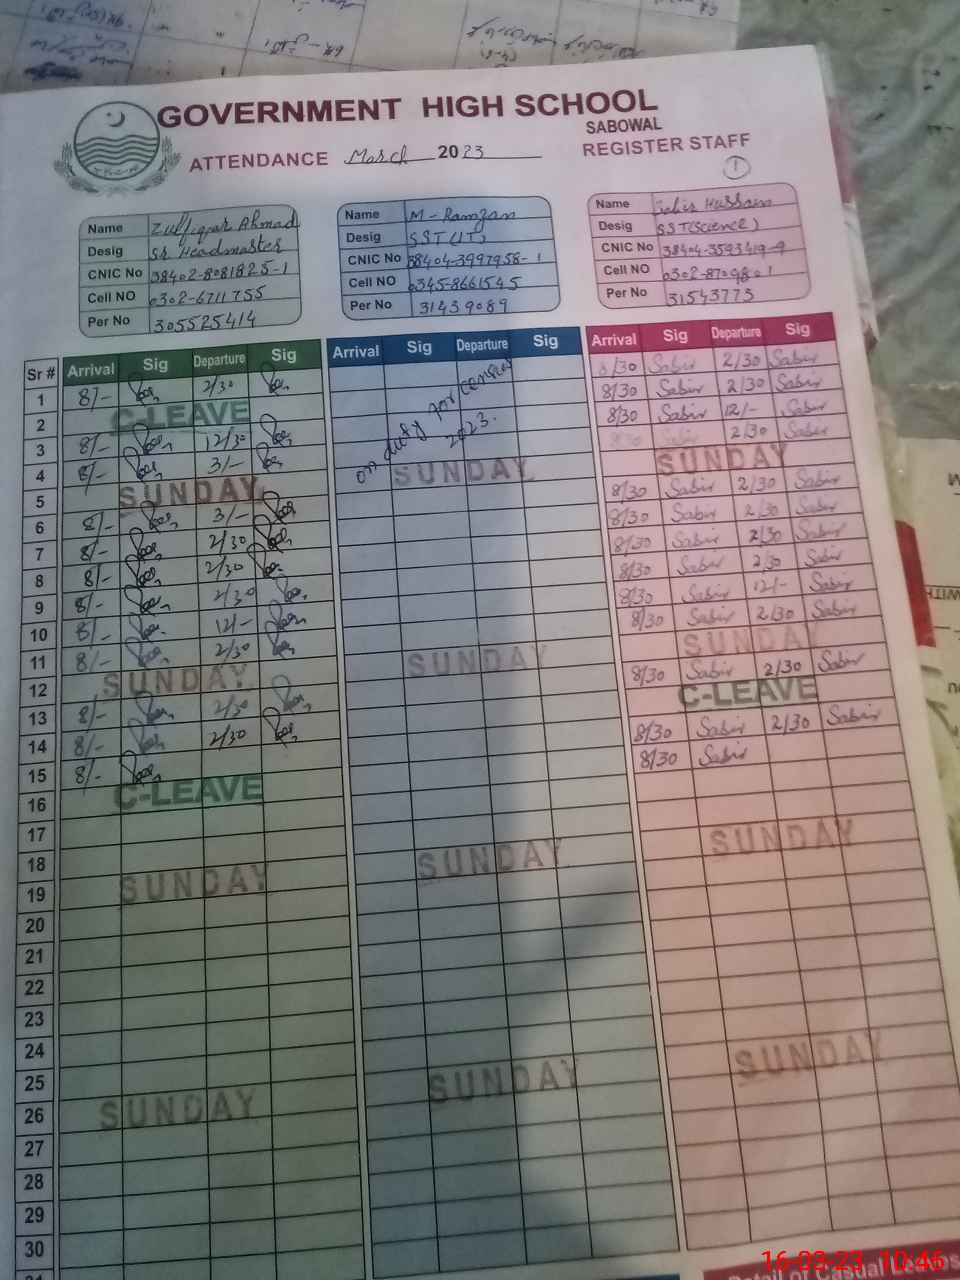 GOVERNMENT HIGH SCHOOL
SABOWAL
ATTENDANCE March 2023 REGISTER STAFF
1
Name Zulfiqar Ahmad
Desig Sr Headmaster
CNIC No 38402-8081825-1
Cell NO 0302-6711755
Per No 305525414
Name M-Ramzan
Desig SST(IT)
CNIC No 38404-3997958-1
Cell NO 0345-8661545
Per No 31439089
Name Sabir Hussain
Desig SST(Science)
CNIC No 38404-3593419-9
Cell NO
Per No 31543773
Sr # Arrival Sig Departure Sig Arrival Sig Departure Sig Arrival Sig Departure Sig
1 8/- 2/30 8/30 Sabir 2/30 Sabir
2 C-LEAVE 8/30 Sabir 2/30 Sabir
3 8/- 12/30 on duty for census 2023. 8/30 Sabir 12/- Sabir
4 8/- 3/- 2/30 Sabir
5 SUNDAY SUNDAY SUNDAY
6 8/- 3/- 8/30 Sabir 2/30 Sabir
7 8/- 2/30 8/30 Sabir 2/30 Sabir
8 8/- 2/30 8/30 Sabir 2/30 Sabir
9 8/- 2/30 8/30 Sabir 2/30 Sabir
10 8/- 12/- 8/30 Sabir 12/- Sabir
11 8/- 2/30 8/30 Sabir 2/30 Sabir
12 SUNDAY SUNDAY SUNDAY
13 8/- 2/30 8/30 Sabir 2/30 Sabir
14 8/- 2/30 C-LEAVE
15 8/- 8/30 Sabir 2/30 Sabir
16 C-LEAVE 8/30 Sabir
17
18
19 SUNDAY SUNDAY SUNDAY
20
21
22
23
24
25
26 SUNDAY SUNDAY SUNDAY
27
28
29
30
16-03-23 10:46